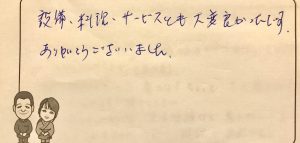 設備、料理、サービスとも大変良かったです。
ありがとうございました。